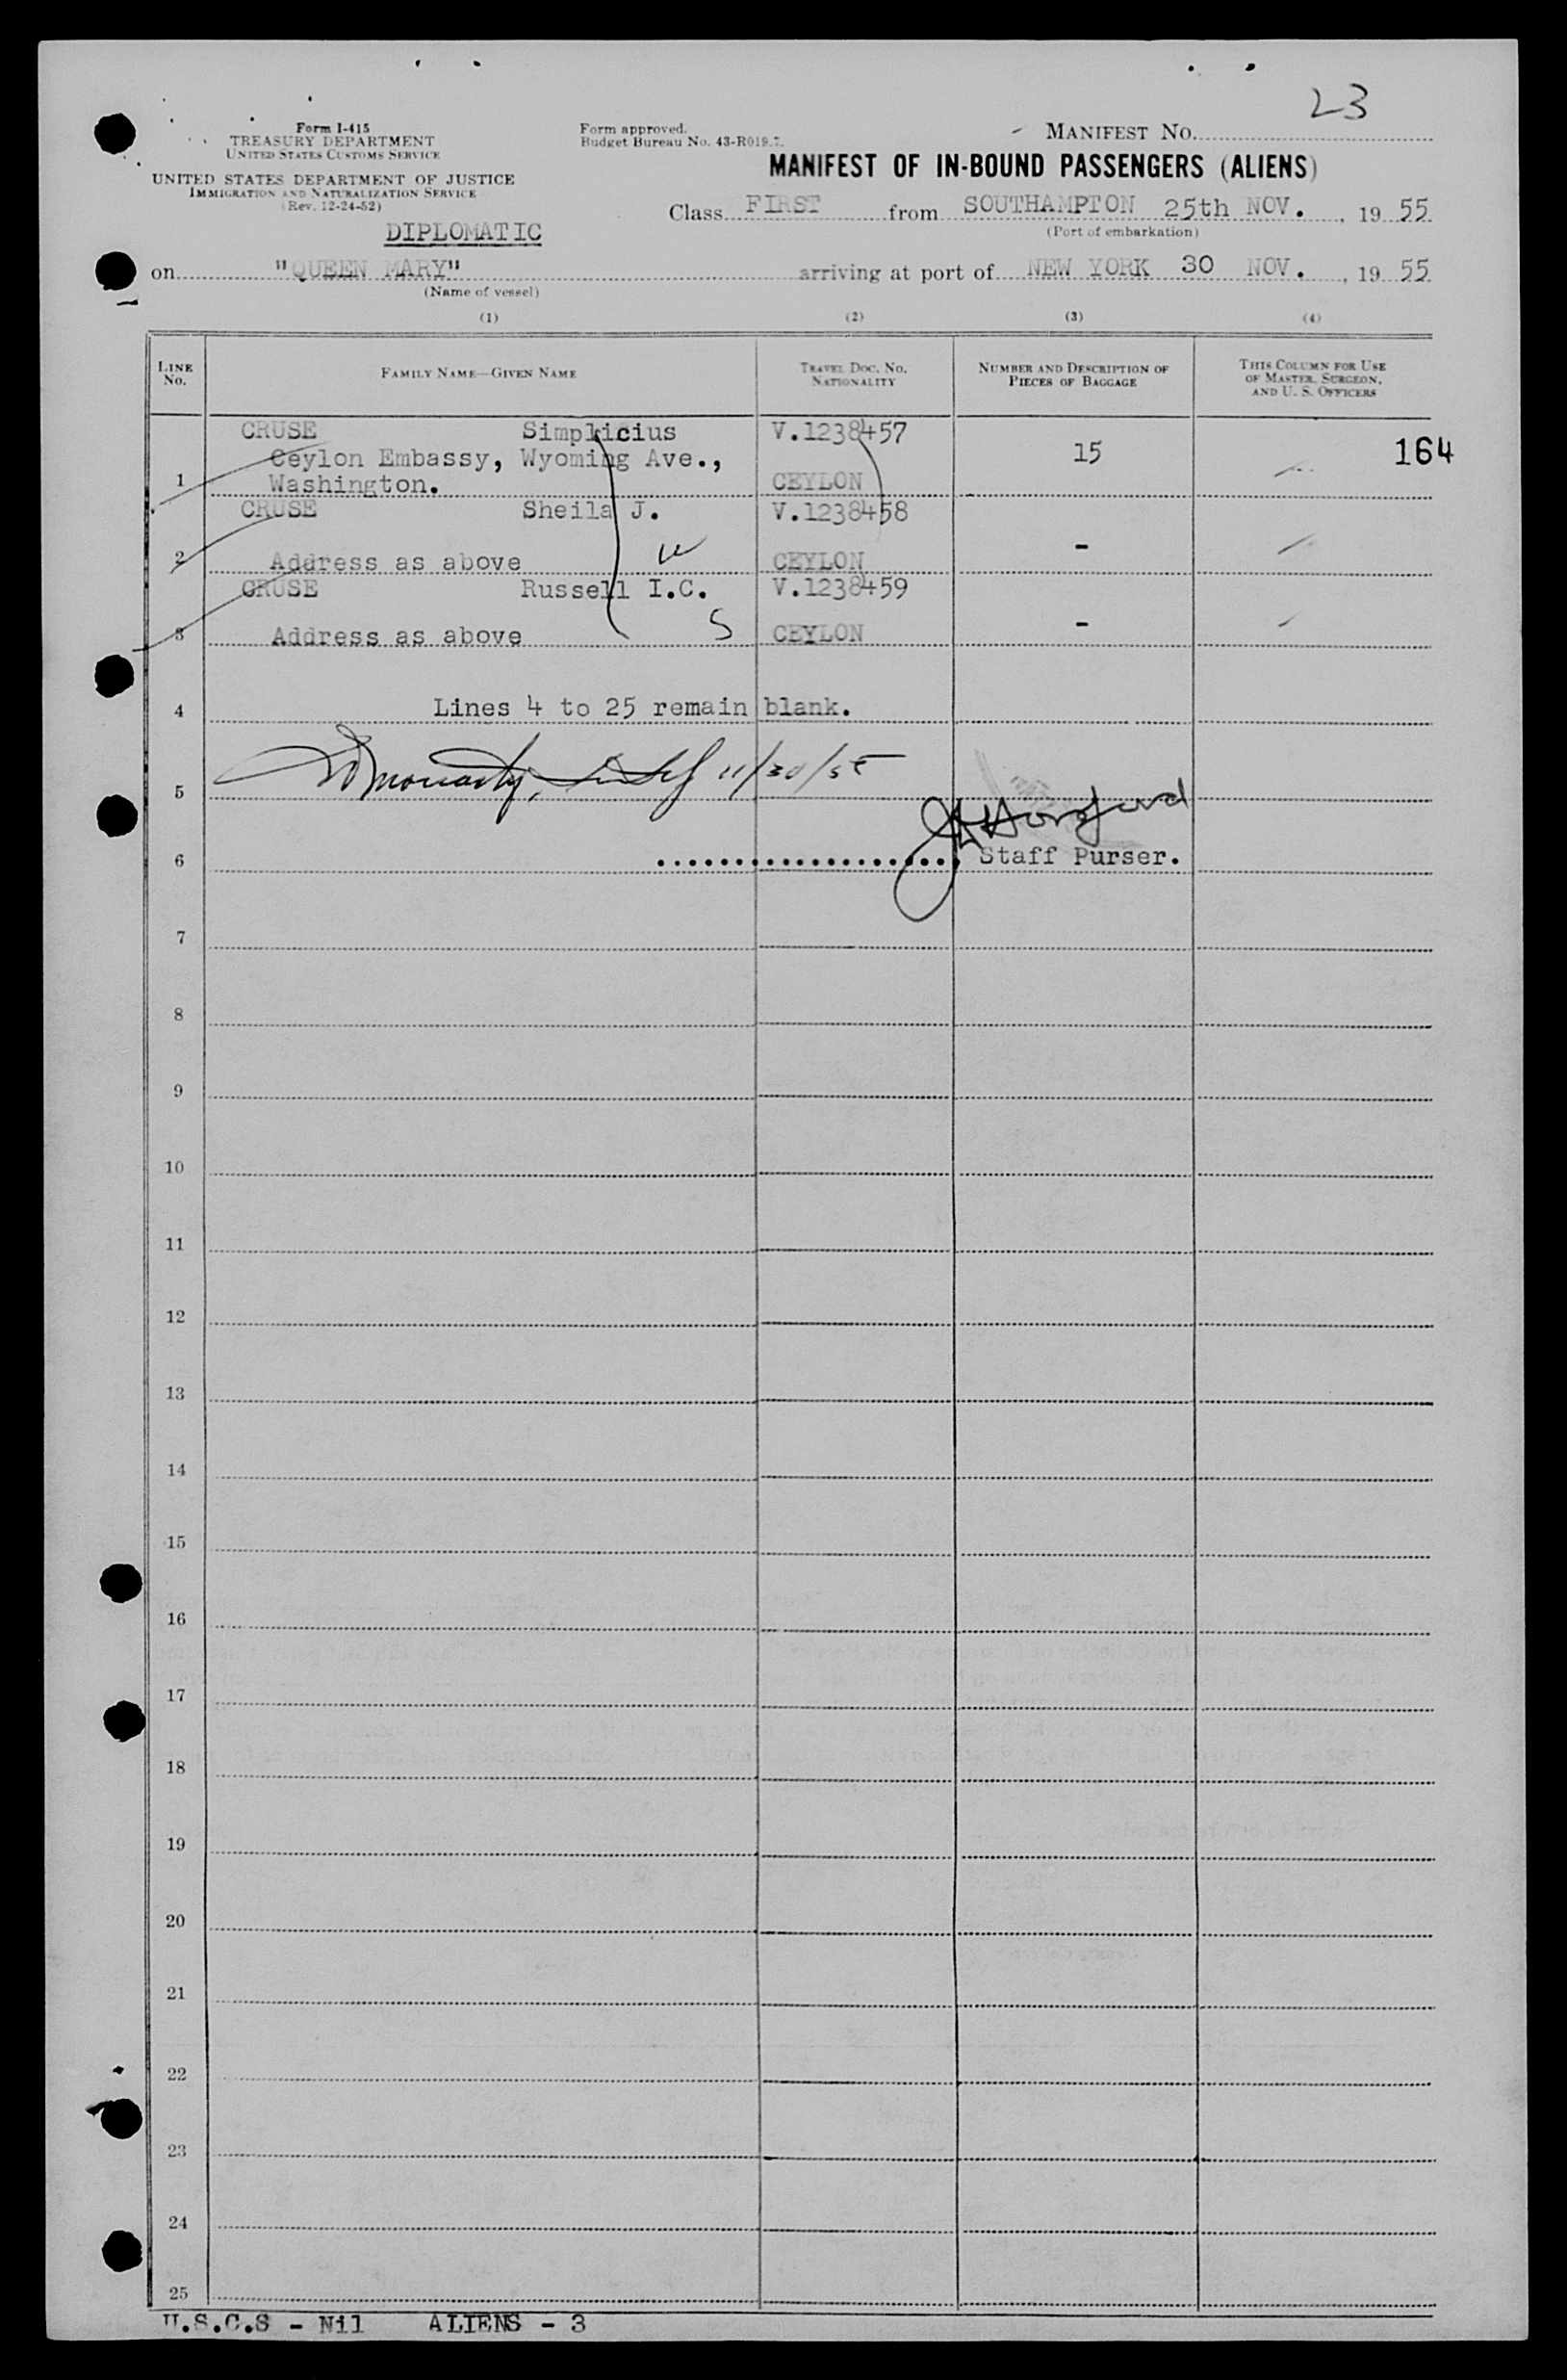 23
Form I-415
TREASURY DEPARTMENT
UNITED STATES CUSTOMS SERVICE
Form approved.
Budget Bureau No. 43-R019.
MANIFEST NO.
MANIFEST OF IN-BOUND PASSENGERS (ALIENS)
UNITED STATES DEPARTMENT OF JUSTICE
IMMIGRATION AND NATURALIZATION SERVICE
(Rev. 12-24-52)
Class FIRST from SOUTHAMPTON 25th NOV., 19 55
(Port of embarkation)
DIPLOMATIC
on "QUEEN MARY" arriving at port of NEW YORK 30 NOV., 19 55
(Name of vessel)
(1) (2) (3) (4)
LINE NO.
FAMILY NAME—GIVEN NAME
TRAVEL DOC. NO.
NATIONALITY
NUMBER AND DESCRIPTION OF
PIECES OF BAGGAGE
THIS COLUMN FOR USE
OF MASTER, SURGEON,
AND U. S. OFFICERS
CRUSE Simplicius V.1238457
Ceylon Embassy, Wyoming Ave., 15 164
1 Washington. CEYLON
CRUSE Sheila J. V.1238458
2 Address as above W CEYLON -
CRUSE Russell I.C. V.1238459
3 Address as above S CEYLON -
4 Lines 4 to 25 remain blank.
5 11/30/55
6 Staff Purser.
7
8
9
10
11
12
13
14
15
16
17
18
19
20
21
22
23
24
25
U.S.C.S - Nil ALIENS - 3